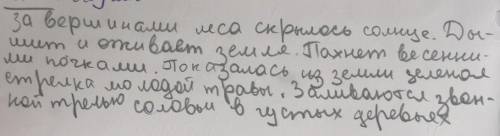 За вершинами леса скрылось солнце. Ды-
мит и оживает земля. Пахнет весенни-
ми почками. Показалась из земли зеленая
стрелка молодой травы. Заливаются звон-
кой трелью соловьи в густых деревьях